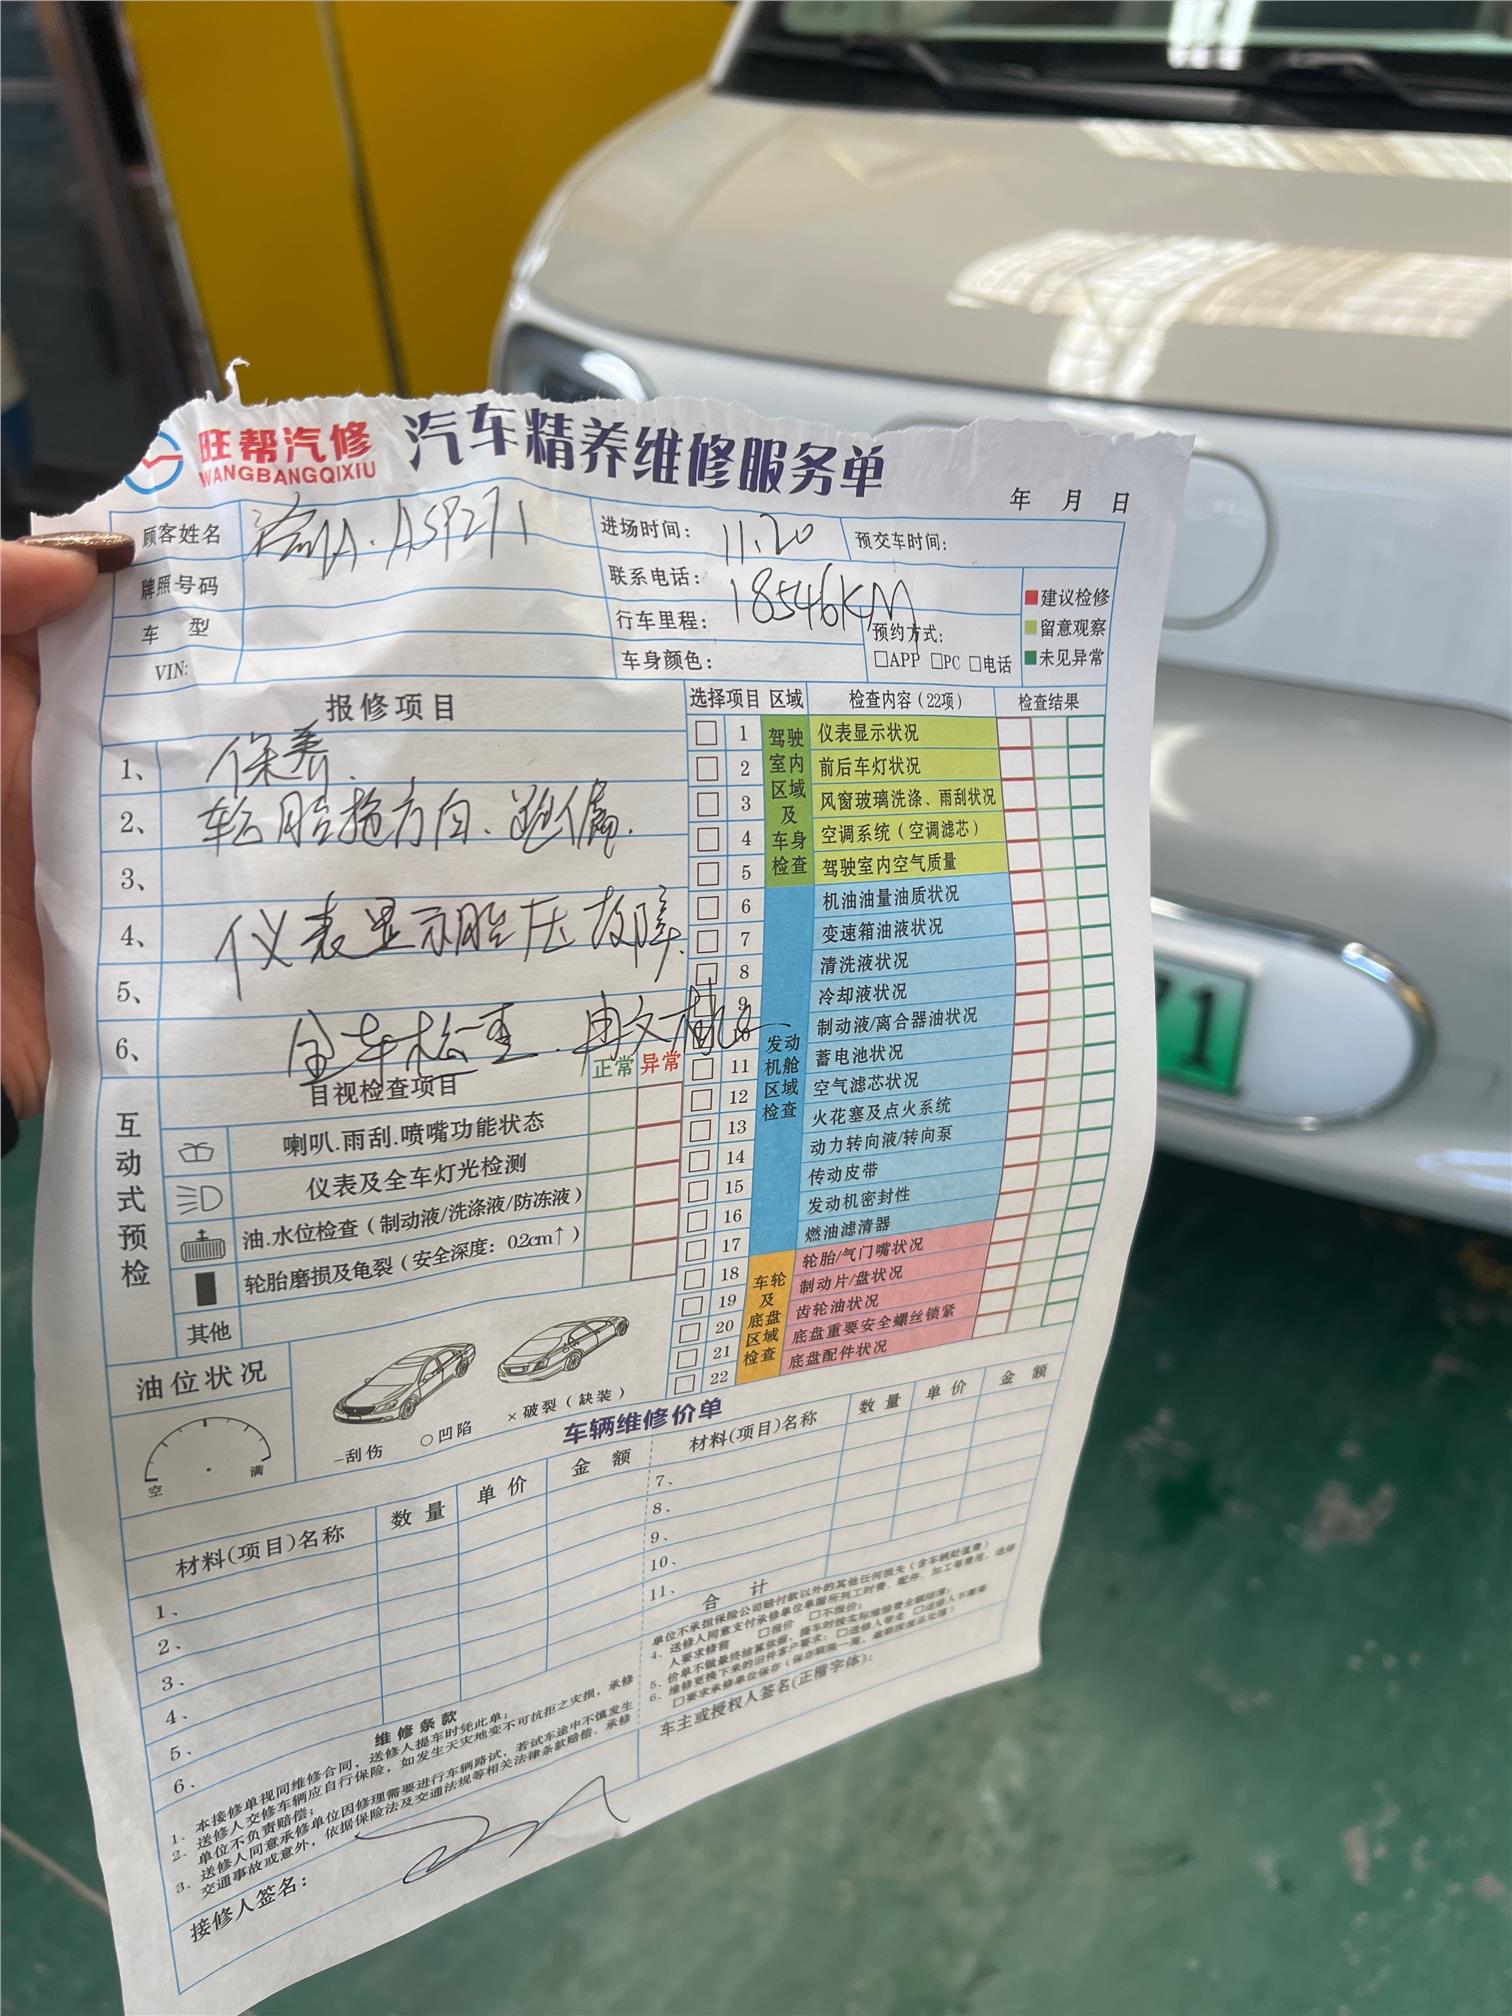 旺帮汽修
WANGBANGQIXIU
汽车精养维修服务单
年 月 日
顾客姓名
进场时间: 11.20
预交车时间:
牌照号码
联系电话:
18546KM
车 型
行车里程:
预约方式:
□APP □PC □电话
VIN:
车身颜色:
建议检修
留意观察
未见异常
报修项目
1、 保养.
2、 轮胎拖方向、跑偏.
3、
4、 仪表显示胎压故障.
5、
6、 全车检查.
选择项目 区域 检查内容（22项） 检查结果
驾驶室内区域及车身检查
1 仪表显示状况
2 前后车灯状况
3 风窗玻璃洗涤、雨刮状况
4 空调系统（空调滤芯）
5 驾驶室内空气质量
发动机舱区域检查
6 机油油量油质状况
7 变速箱油液状况
8 清洗液状况
9 冷却液状况
10 制动液/离合器油状况
11 蓄电池状况
12 空气滤芯状况
13 火花塞及点火系统
14 动力转向液/转向泵
15 传动皮带
16 发动机密封性
17 燃油滤清器
车轮及底盘区域检查
18 轮胎/气门嘴状况
19 制动片/盘状况
20 齿轮油状况
21 底盘重要安全螺丝锁紧
22 底盘配件状况
互动式预检
目视检查项目 正常 异常
喇叭.雨刮.喷嘴功能状态
仪表及全车灯光检测
油.水位检查（制动液/洗涤液/防冻液）
轮胎磨损及龟裂（安全深度：0.2cm↑）
其他
油位状况
空 满
-刮伤 ○凹陷 ×破裂（缺装）
车辆维修价单
材料(项目)名称 数量 单价 金额
1、
2、
3、
4、
5、
6、
材料(项目)名称 数量 单价 金额
7、
8、
9、
10、
11、
合 计
维修条款
1、本接修单视同维修合同，送修人提车时凭此单；
2、送修人交修车辆应自行保险，如发生天灾地变不可抗拒之灾损，承修
单位不负责赔偿；
3、送修人同意承修单位因修理需要进行车辆路试，若试车途中不慎发生
交通事故或意外，依据保险法及交通法规等相关法律条款赔偿。承修
单位不承担保险公司赔付款以外的其他任何损失（含车辆贬值费）
4、送修人同意支付承修单位单据所列工时费、配件、加工等费用，送修
人要求修前 □报价 □不报价；
5、价单不做最终结算依据，提车时按实际维修费全额结清；
6、维修更换下来的旧件客户要求：□送修人带走 □送修人不需要
□要求承修单位保存（保存期限一周，逾期按废品处理）
接修人签名：
车主或授权人签名(正楷字体)：
1